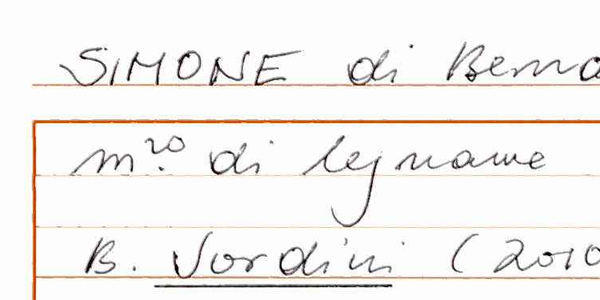 SIMONE di Berna
m.ro di legname
B. Sordini (2010